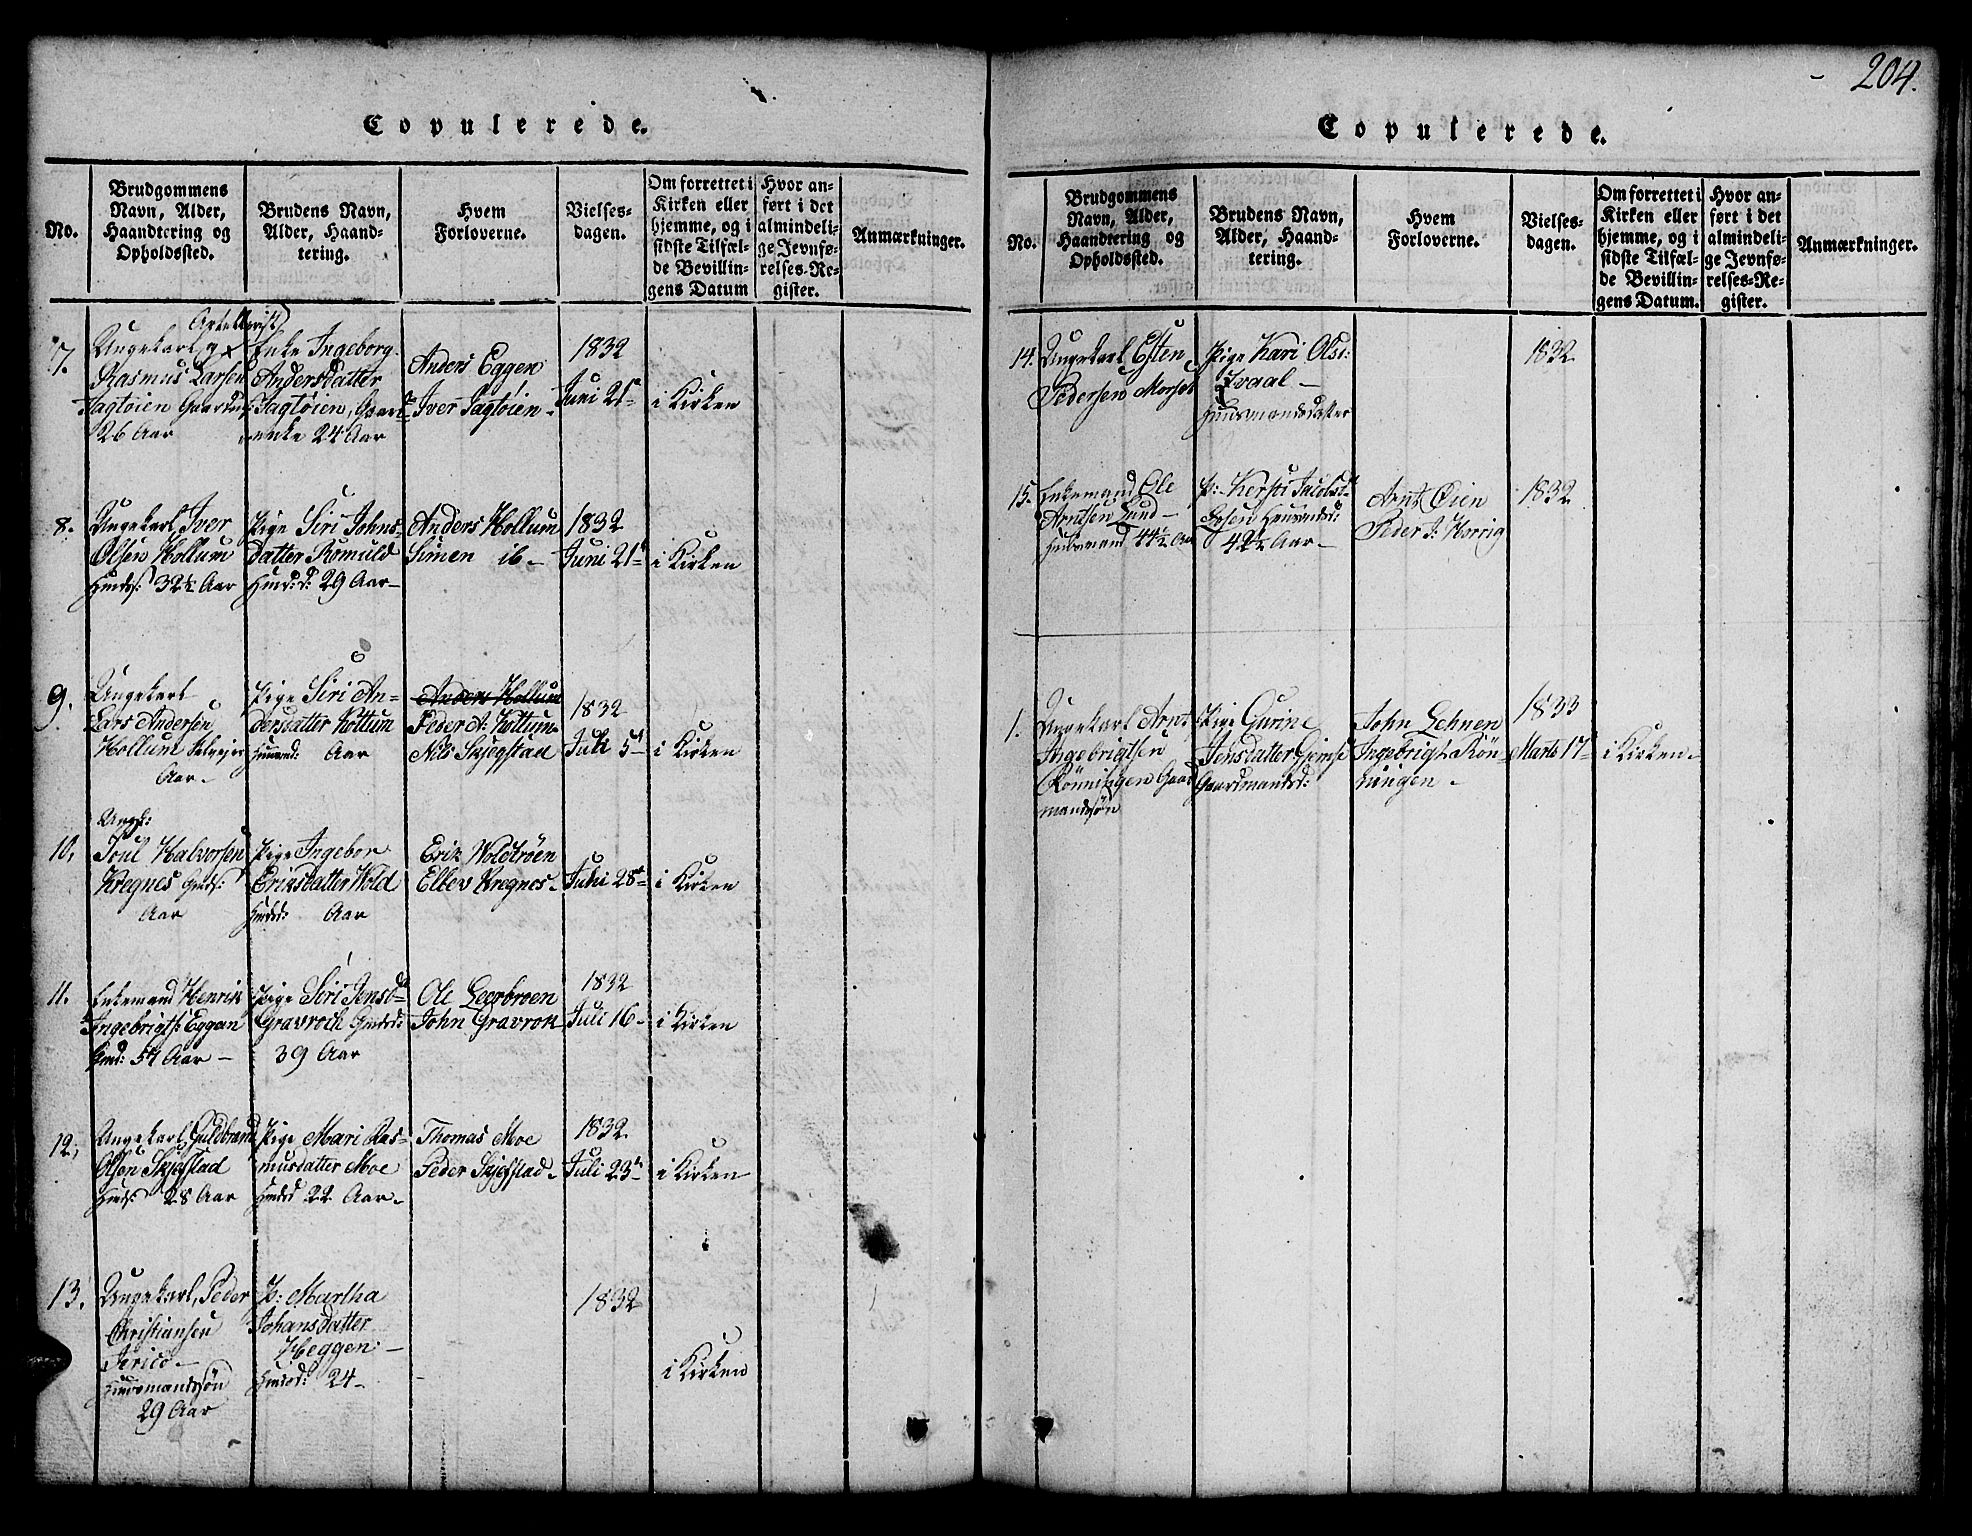 204.
Copulerede.
No.
Brudgommens
Navn, Alder,
Haandtering og
Opholdssted.
Brudens Navn,
Alder, Haand-
tering.
Hvem
Forloverne.
Vielses-
dagen.
Om forrettet i
Kirken eller
hjemme, og i
sidste Tilfæl-
de Bevillin-
gens Datum
Hvor an-
ført i det
almindeli-
ge Jevnfø-
relses-Re-
gister.
Anmærkninger.
7.
Ungekarl
Rasmus Larsen
26 Aar
Enke Ingeborg
Andersdatter
Jagtøien,
enke 24 Aar
Anders Eggen
Iver Jagtøien
1832
Juni 21
i Kirken
8.
Ungekarl Iver
Olsen Hollum
32½ Aar
Pige Siri Johns-
datter Romuld
29 Aar
Anders Hollum
Simen ib
1832
Juni 21
i Kirken
9.
Ungekarl
Lars Andersen
Hollum
Aar
Pige Siri An-
dersdatter Hollum
Aar
Anders Hollum
Peder A. Hollum
Nils Skjegstad
1832
Juli 5
i Kirken
10.
Ungk:
Joul Halvorsen
Kregnes
Aar
Pige Ingebor
Eriksdatter Wold
Aar
Erik Woldtrøen
Ellev Kregnes
Juli 28
i Kirken
11.
Enkemand Henrik
Ingebrigts: Eggan
57 Aar
Pige Siri Jensd
Gravroch
39 Aar
Ole Leerbroen
John Gravrok
1832
Juli 16
i Kirken
12.
Ungekarl Guldbrand
Olsen Skjegstad
28 Aar
Pige Mari Ras-
musdatter Moe
22 Aar
Thomas Moe
Peder Skjegstad
1832
Juli 23
i Kirken
13.
Ungekarl, Peder
Christiansen
Jerico
Huusmandssøn
29 Aar
P: Martha
Johansdatter
Heggen
24
1832
i Kirken
Copulerede.
No.
Brudgommens
Navn, Alder,
Haandtering og
Opholdssted.
Brudens Navn,
Alder, Haand-
tering.
Hvem
Forloverne.
Vielses-
dagen.
Om forrettet i
Kirken eller
hjemme, og i
sidste Tilfæl-
de Bevillin-
gens Datum.
Hvor an-
ført i det
almindeli-
ge Jevnfø-
relses-Re-
gister.
Anmærkninger.
14.
Ungekarl Esten
Pedersen Morset
Pige Kari Ols:
Qvaal
Huusmandsdatter
1832
15.
Enkemand Ole
Arntsen Lund
Huusmand 44½ Aar
P: Kersti Jacobsd
42½ Aar
Arnt Øien
Peder J: Horrig
1832
1.
Ungekarl Arnt
Ingebrigtsen
Rønningen Gaard
mandssøn
Pige Gurine
Jensdatter Gjemse
Gaardmandsd:
John Lehnen
Ingebrigt Røn-
ningen
1833
Marts 17
i Kirken